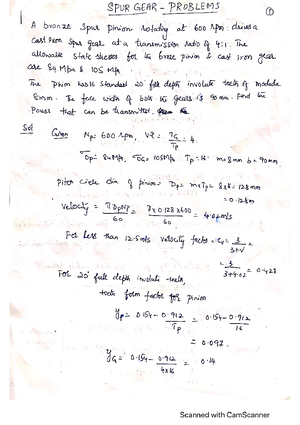 SPUR GEAR - PROBLEMS
①
A bronze spur pinion rotating at 600 rpm drives a
cast iron spur gear at a transmission ratio of 4:1. The
allowable static stresses for the bronze pinion & cast iron gear
are 84 MPa & 105 MPa.
The pinion has 16 standard 20° full depth involute teeth of module
8mm. The face width of both the gears is 90mm. Find the
Power that can be transmitted.
Sol Given Np = 600 rpm, V.R = TG/TP = 4
σop = 84 MPa, σoG = 105 MPa Tp = 16 m = 8mm b = 90mm
Pitch circle dia of pinion = Dp = m×Tp = 8×16 = 128mm
= 0.128m
Velocity = πDpNp/60 = π×0.128×600/60 = 4.02 m/s
For less than 12.5 m/s velocity factor = Cv = 3/3+V
= 3/3+4.02 = 0.428
For 20° full depth involute teeth,
tooth form factor for pinion
yp = 0.154 - 0.912/Tp = 0.154 - 0.912/16
= 0.097
yG = 0.154 - 0.912/4×16 = 0.14
Scanned with CamScanner